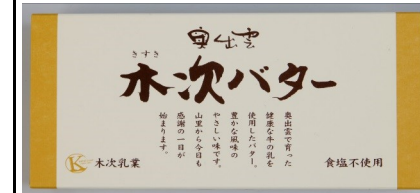 奥出雲
きすき
木次バター
奥出雲で育った
健康な牛の乳を
使用したバター。
豊かな風味の
やさしい味です。
山里から今日も
感謝の一日が
始まります。
木次乳業
食塩不使用